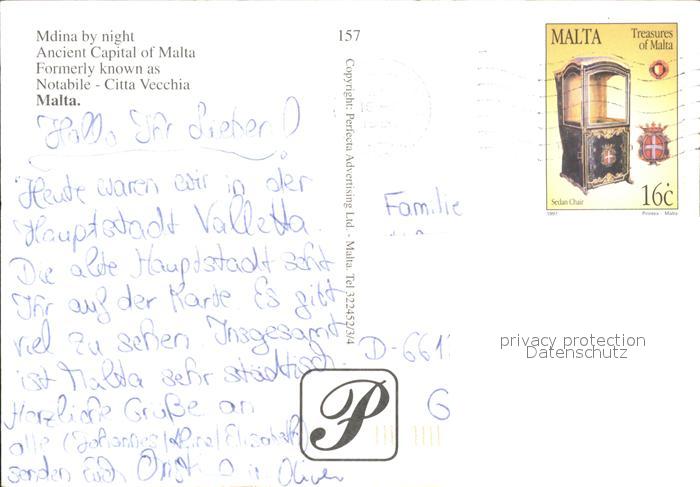 Mdina by night
Ancient Capital of Malta
Formerly known as
Notabile - Citta Vecchia
Malta.
157
Copyright: Perfecta Advertising Ltd. - Malta. Tel 322452/3/4
MALTA
Treasures
of Malta
Sedan Chair
16c
1997
Printex - Malta
Hallo Ihr Lieben!
Heute waren wir in der
Hauptstadt Valletta.
Die alte Hauptstadt seht
Ihr auf der Karte. Es gibt
viel zu sehen. Insgesamt
ist Malta sehr städtisch.
Herzliche Grüße an
alle (Johannes
senden Euch Oliver
Familie
D-661
G
P
privacy protection
Datenschutz